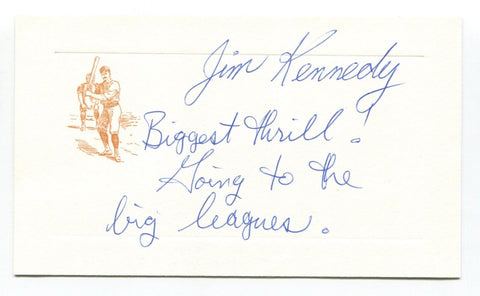 Jim Kennedy
Biggest thrill!
Going to the
big leagues.